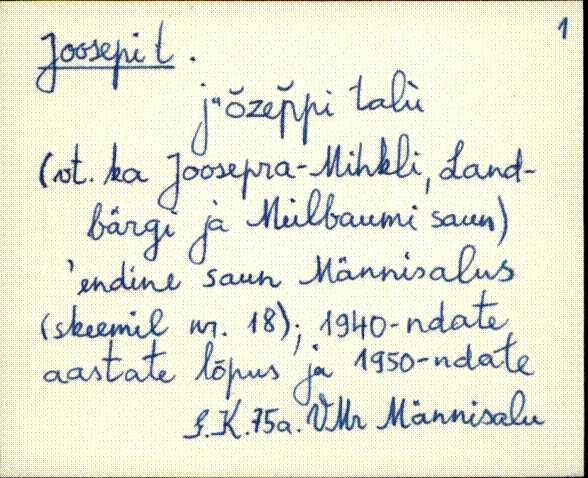 1
Joosepi t.
j"ŏzep̆pi talù
(vt. ka Joosepra-Mihkli, Land-
bärgi ja Meilbaumi saun)
'endine saun Männisalus
(skeemil nr. 18); 1940-ndate
aastate lõpus ja 1950-ndate
S.K.75a. VMr Männisalu